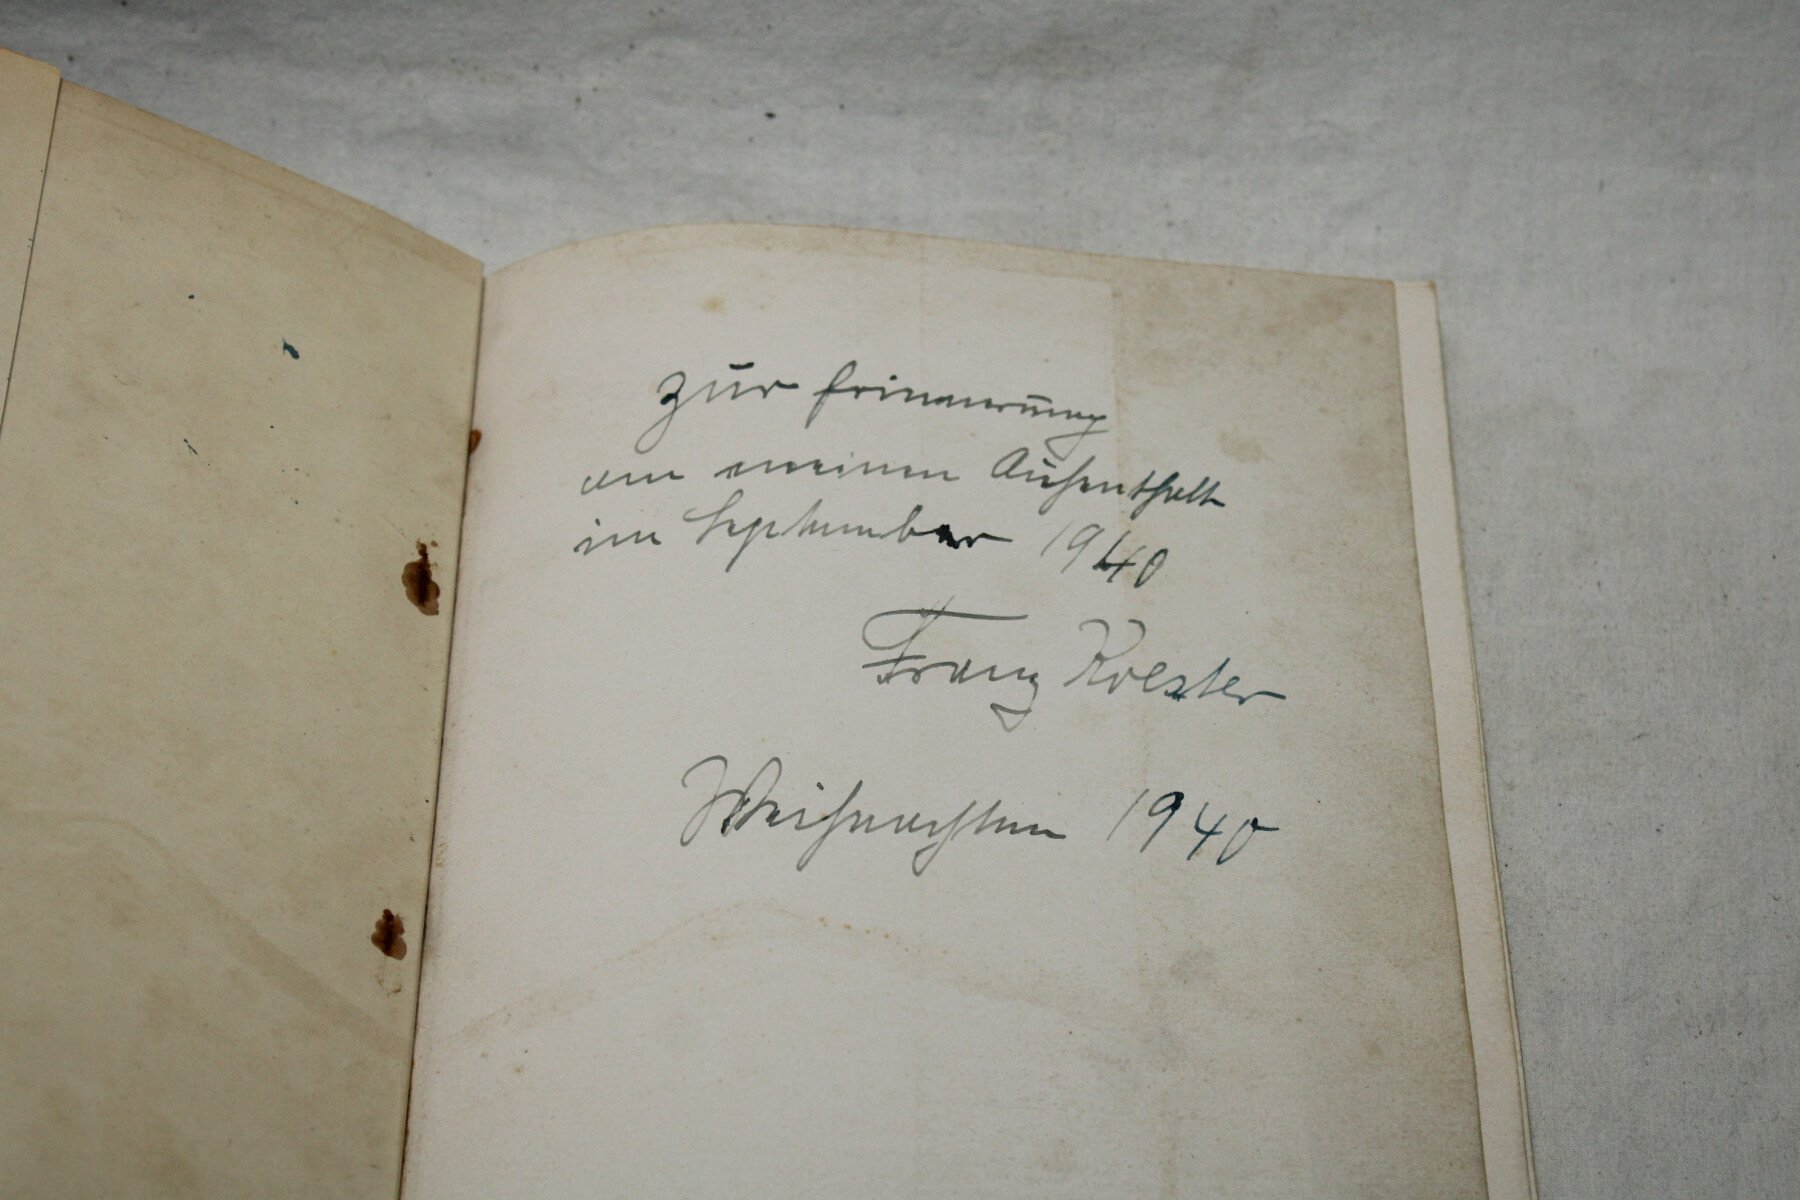 Zur Erinnerung
an meinen Aufenthalt
im September 1940
Franz Koester
Weihnachten 1940